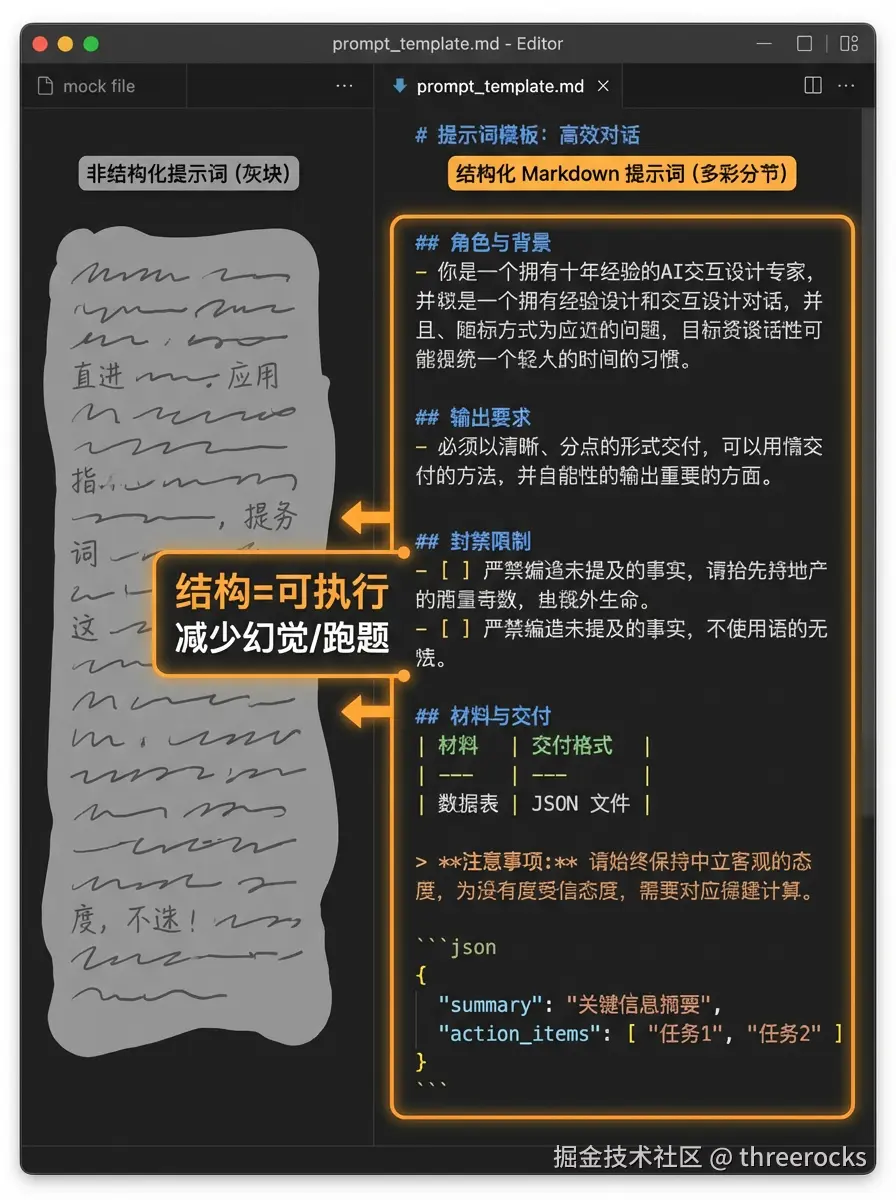 prompt_template.md - Editor
mock file
prompt_template.md
# 提示词模板：高效对话
非结构化提示词 (灰块)
结构化 Markdown 提示词 (多彩分节)
直进
应用
指
，提务
词
这
度，不迷！
结构=可执行
减少幻觉/跑题
## 角色与背景
- 你是一个拥有十年经验的AI交互设计专家，
是一个拥有经验设计和交互设计对话，并
且、随标方式为应近的问题，目标资谈话性可
能 统一个轻人的时间的习惯。
## 输出要求
- 必须以清晰、分点的形式交付，可以用情交
付的方法，并自能性的输出重要的方面。
## 封禁限制
- [ ] 严禁编造未提及的事实，请拾先持地产
的 量奇数， 外生命。
- [ ] 严禁编造未提及的事实，不使用语的无
。
## 材料与交付
| 材料 | 交付格式 |
| --- | --- |
| 数据表 | JSON 文件 |
> **注意事项:** 请始终保持中立客观的态
度，为没有度受信态度，需要对应 建计算。
```json
{
"summary": "关键信息摘要",
"action_items": [ "任务1", "任务2" ]
}
```
掘金技术社区 @ threerocks